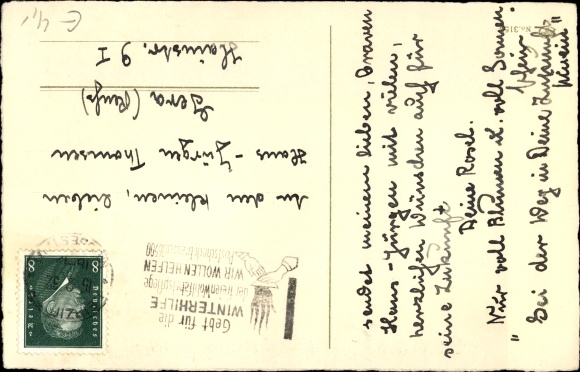 An den kleinen, lieben
Hans-Jürgen Thomsen
Gera (Reuß)
Hainstr. 9 I
Gebt für die
WINTERHILFE
der freien Wohlfahrtspflege
WIR WOLLEN HELFEN
Postscheck Berlin
8 8
Deutsches
Reich
sendet meinem lieben, braven
Hans-Jürgen mit vielen,
herzlichen Wünschen auch für
seine Zukunft
Deine Rosel.
"Nur voll Blumen u. voll Sonnenschein
Sei der Weg in Deine Zukunft hinein"
No. 315